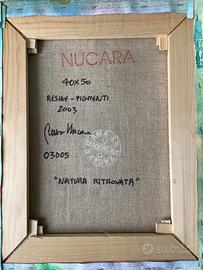 NUCARA
40X50
RESINE - PIGMENTI
2003
03005
"NATURA RITROVATA"
subito